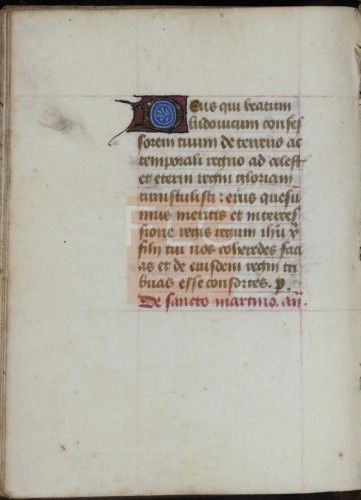 Deus qui beatum
ludovicum confes
sorem tuum de terreno ac
temporali regno ad celest
et eterni regni gloriam
transtulisti: eius quesu
mus meritis et interces
sione regis regum ihu x
filii tui nos coheredes faci
as et de eiusdem regni tri
buas esse consortes. p.
De sancto martino. an.